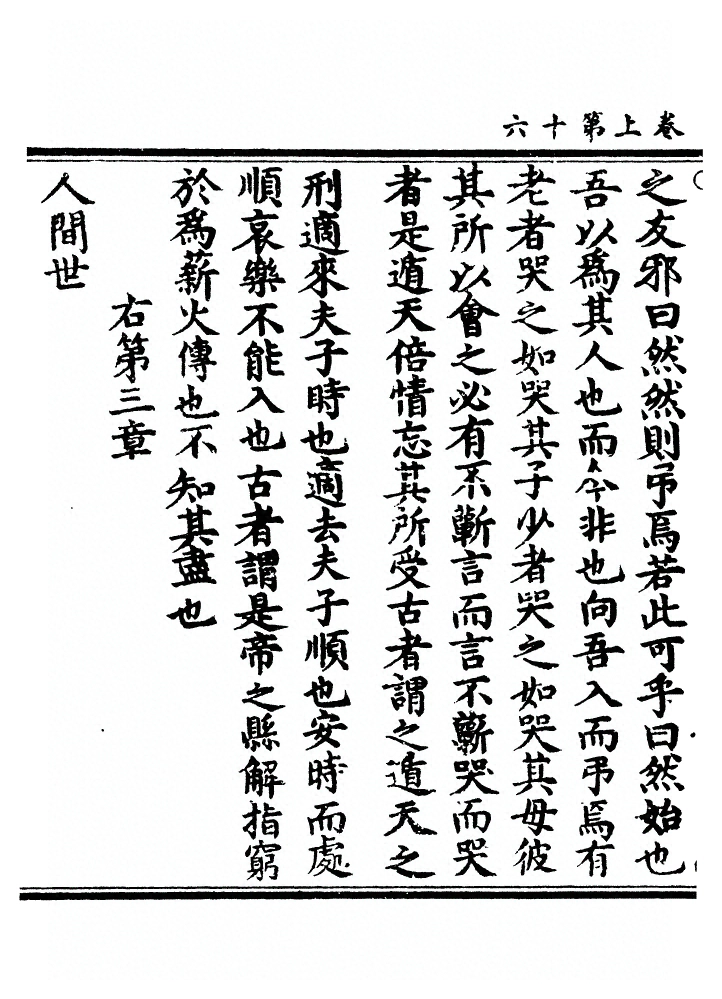 卷上第十六
之友邪曰然然則弔焉若此可乎曰然始也
吾以爲其人也而今非也向吾入而弔焉有
老者哭之如哭其子少者哭之如哭其母彼
其所以會之必有不蘄言而言不蘄哭而哭
者是遁天倍情忘其所受古者謂之遁天之
刑適來夫子時也適去夫子順也安時而處
順哀樂不能入也古者謂是帝之縣解指窮
於爲薪火傳也不知其盡也
右第三章
人間世